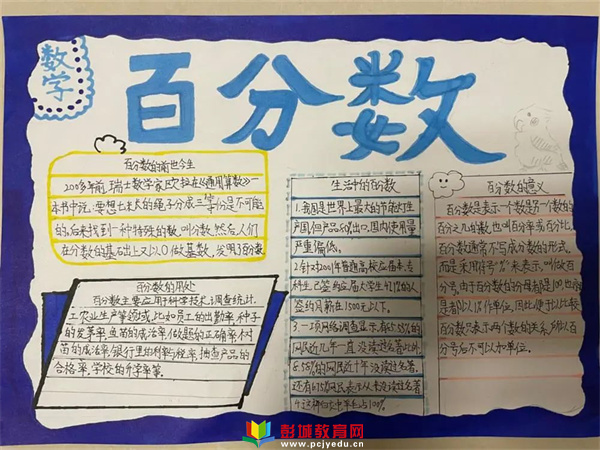 数学
百分数
百分数的前世今生
200多年前,瑞士数学家欧拉在《通用算数》一
本书中说:要想七米长的绳子分成三等份是不可能
的,后来找到一种特殊的数,叫分数,然后人们
在分数的基础上又以100做基数,发明了百分数
百分数的用处
百分数主要应用于科学技术、调查统计、
工农业生产等领域,比如员工的出勤率,种子
的发芽率,鱼苗的成活率,做题的正确率,树
苗的成活率,银行里的利率与税率,抽查产品的
合格率,学校的升学率等。
生活中的百分数
1.我国是世界上最大的节能灯生
产国,但产品80%出口,国内使用量
严重偏低。
2.针对2001年普通高校应届本专
科生,已签约应届大学生
签约月薪在1500元以下。
3.一项网络调查显示,有
网民近几年一直没读过名著
的网民近十年没读过名著
还有 网民表示从未读过名著
百分数的意义
百分数是表示一个数是另一个数的
百分之几的数,也叫百分率或百分比。
百分数通常不写成分数的形式,
而是采用符号“%”来表示,叫做百
分号,由于百分数的分母都是100,也就
是都以1%作单位,因此便于比较。
百分数只表示两个数的关系,所以百
分号后不可以加单位。
彭城教育网
www.pcjyedu.cn